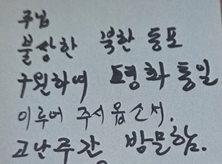 주님
불상한 북한 동포
구원하여 평화 통일
이루어 주시옵소서.
고난주간 방문함.